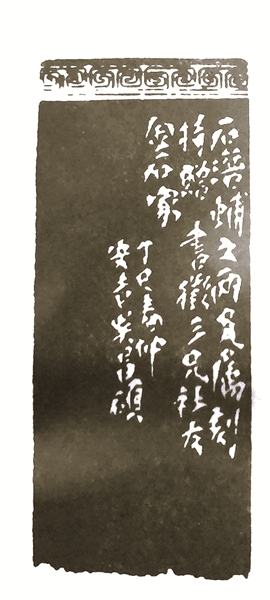 石潛輔之兩兄属刻
持贈書徵三兄社友
金石家
丁巳春仲
安吉吳昌碩